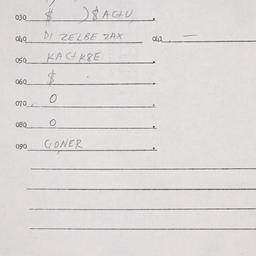 030 $ )$ACHU
040 DI ZELBE ZAX 041 —
050 KACHKBE
060 $
070 0
080 0
090 GONER